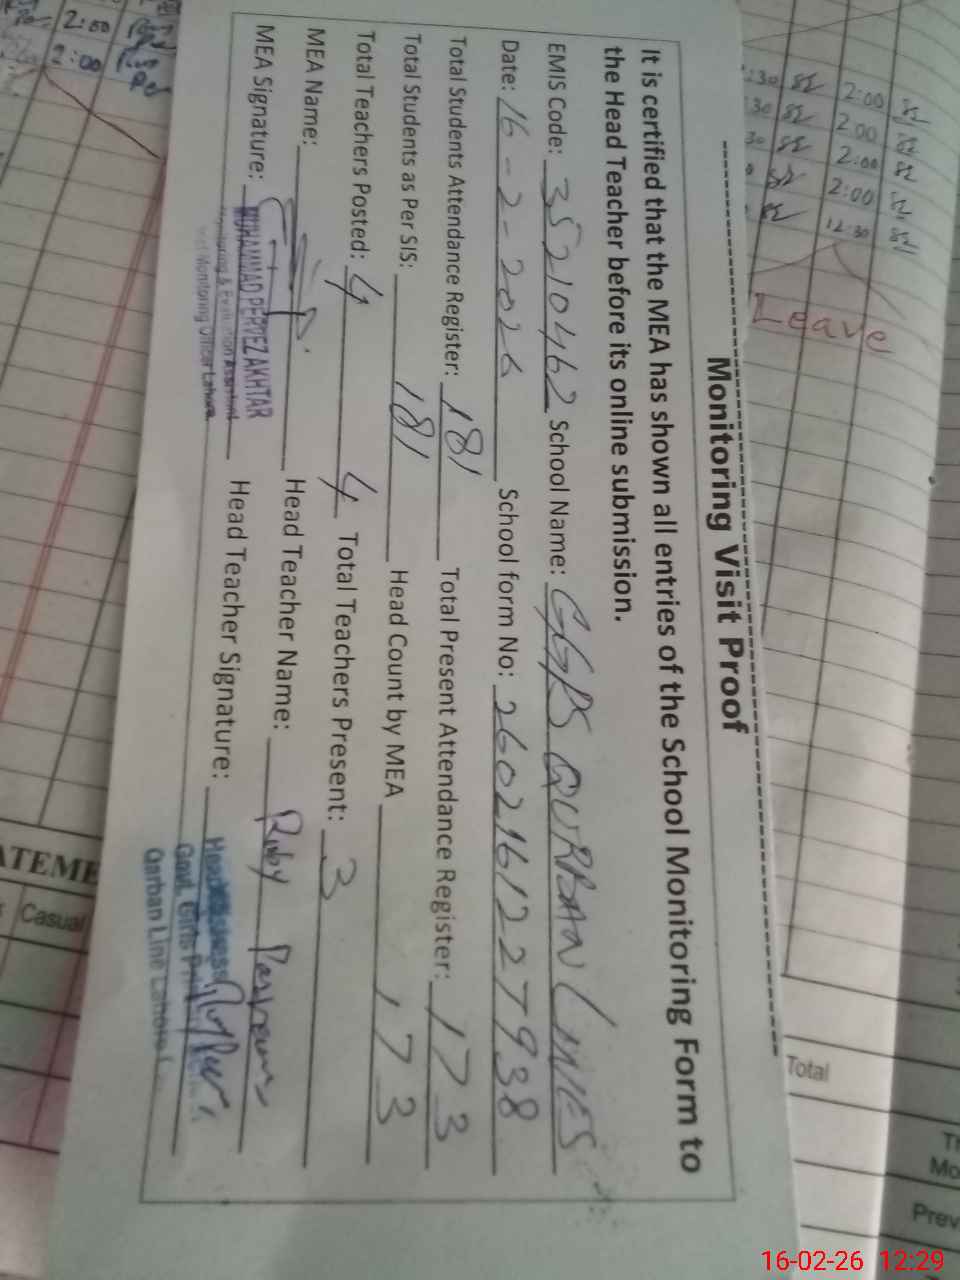 Monitoring Visit Proof
It is certified that the MEA has shown all entries of the School Monitoring Form to
the Head Teacher before its online submission.
EMIS Code: 35210462 School Name: GGPS QURBAN LINES
Date: 16-2-2026 School form No: 2602161227938
Total Students Attendance Register: 181 Total Present Attendance Register: 173
Total Students as Per SIS: 181 Head Count by MEA 173
Total Teachers Posted: 4 4 Total Teachers Present: 3
MEA Name: Head Teacher Name: Ruby Parveen
MEA Signature: Head Teacher Signature:
MUHAMMAD PERVEZ AKHTAR
Monitoring & Evaluation Assistant
Monitoring Officer Lahore
Headmistress
Govt. Girls
Qarban Line Lahore
2:00
2:00
:30 2:00
30 2:00
30 2:00
2:00
12:30
Leave
ATEME
Casual
Total
Mo
Prev
16-02-26 12:29